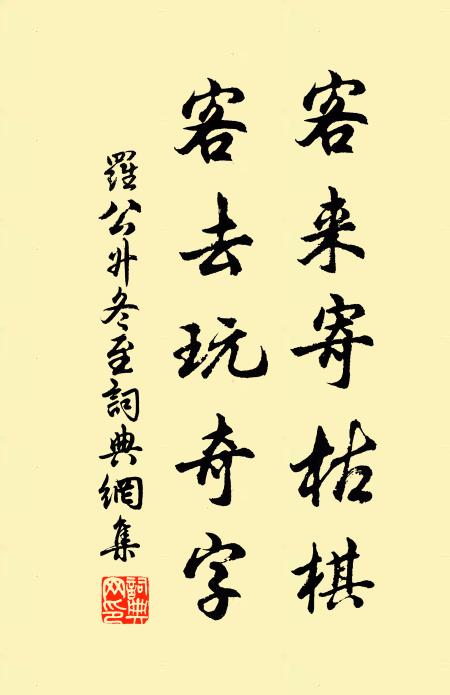 客来寄枯棋
客去玩奇字
羅公升冬至詞典網集
詞典网印